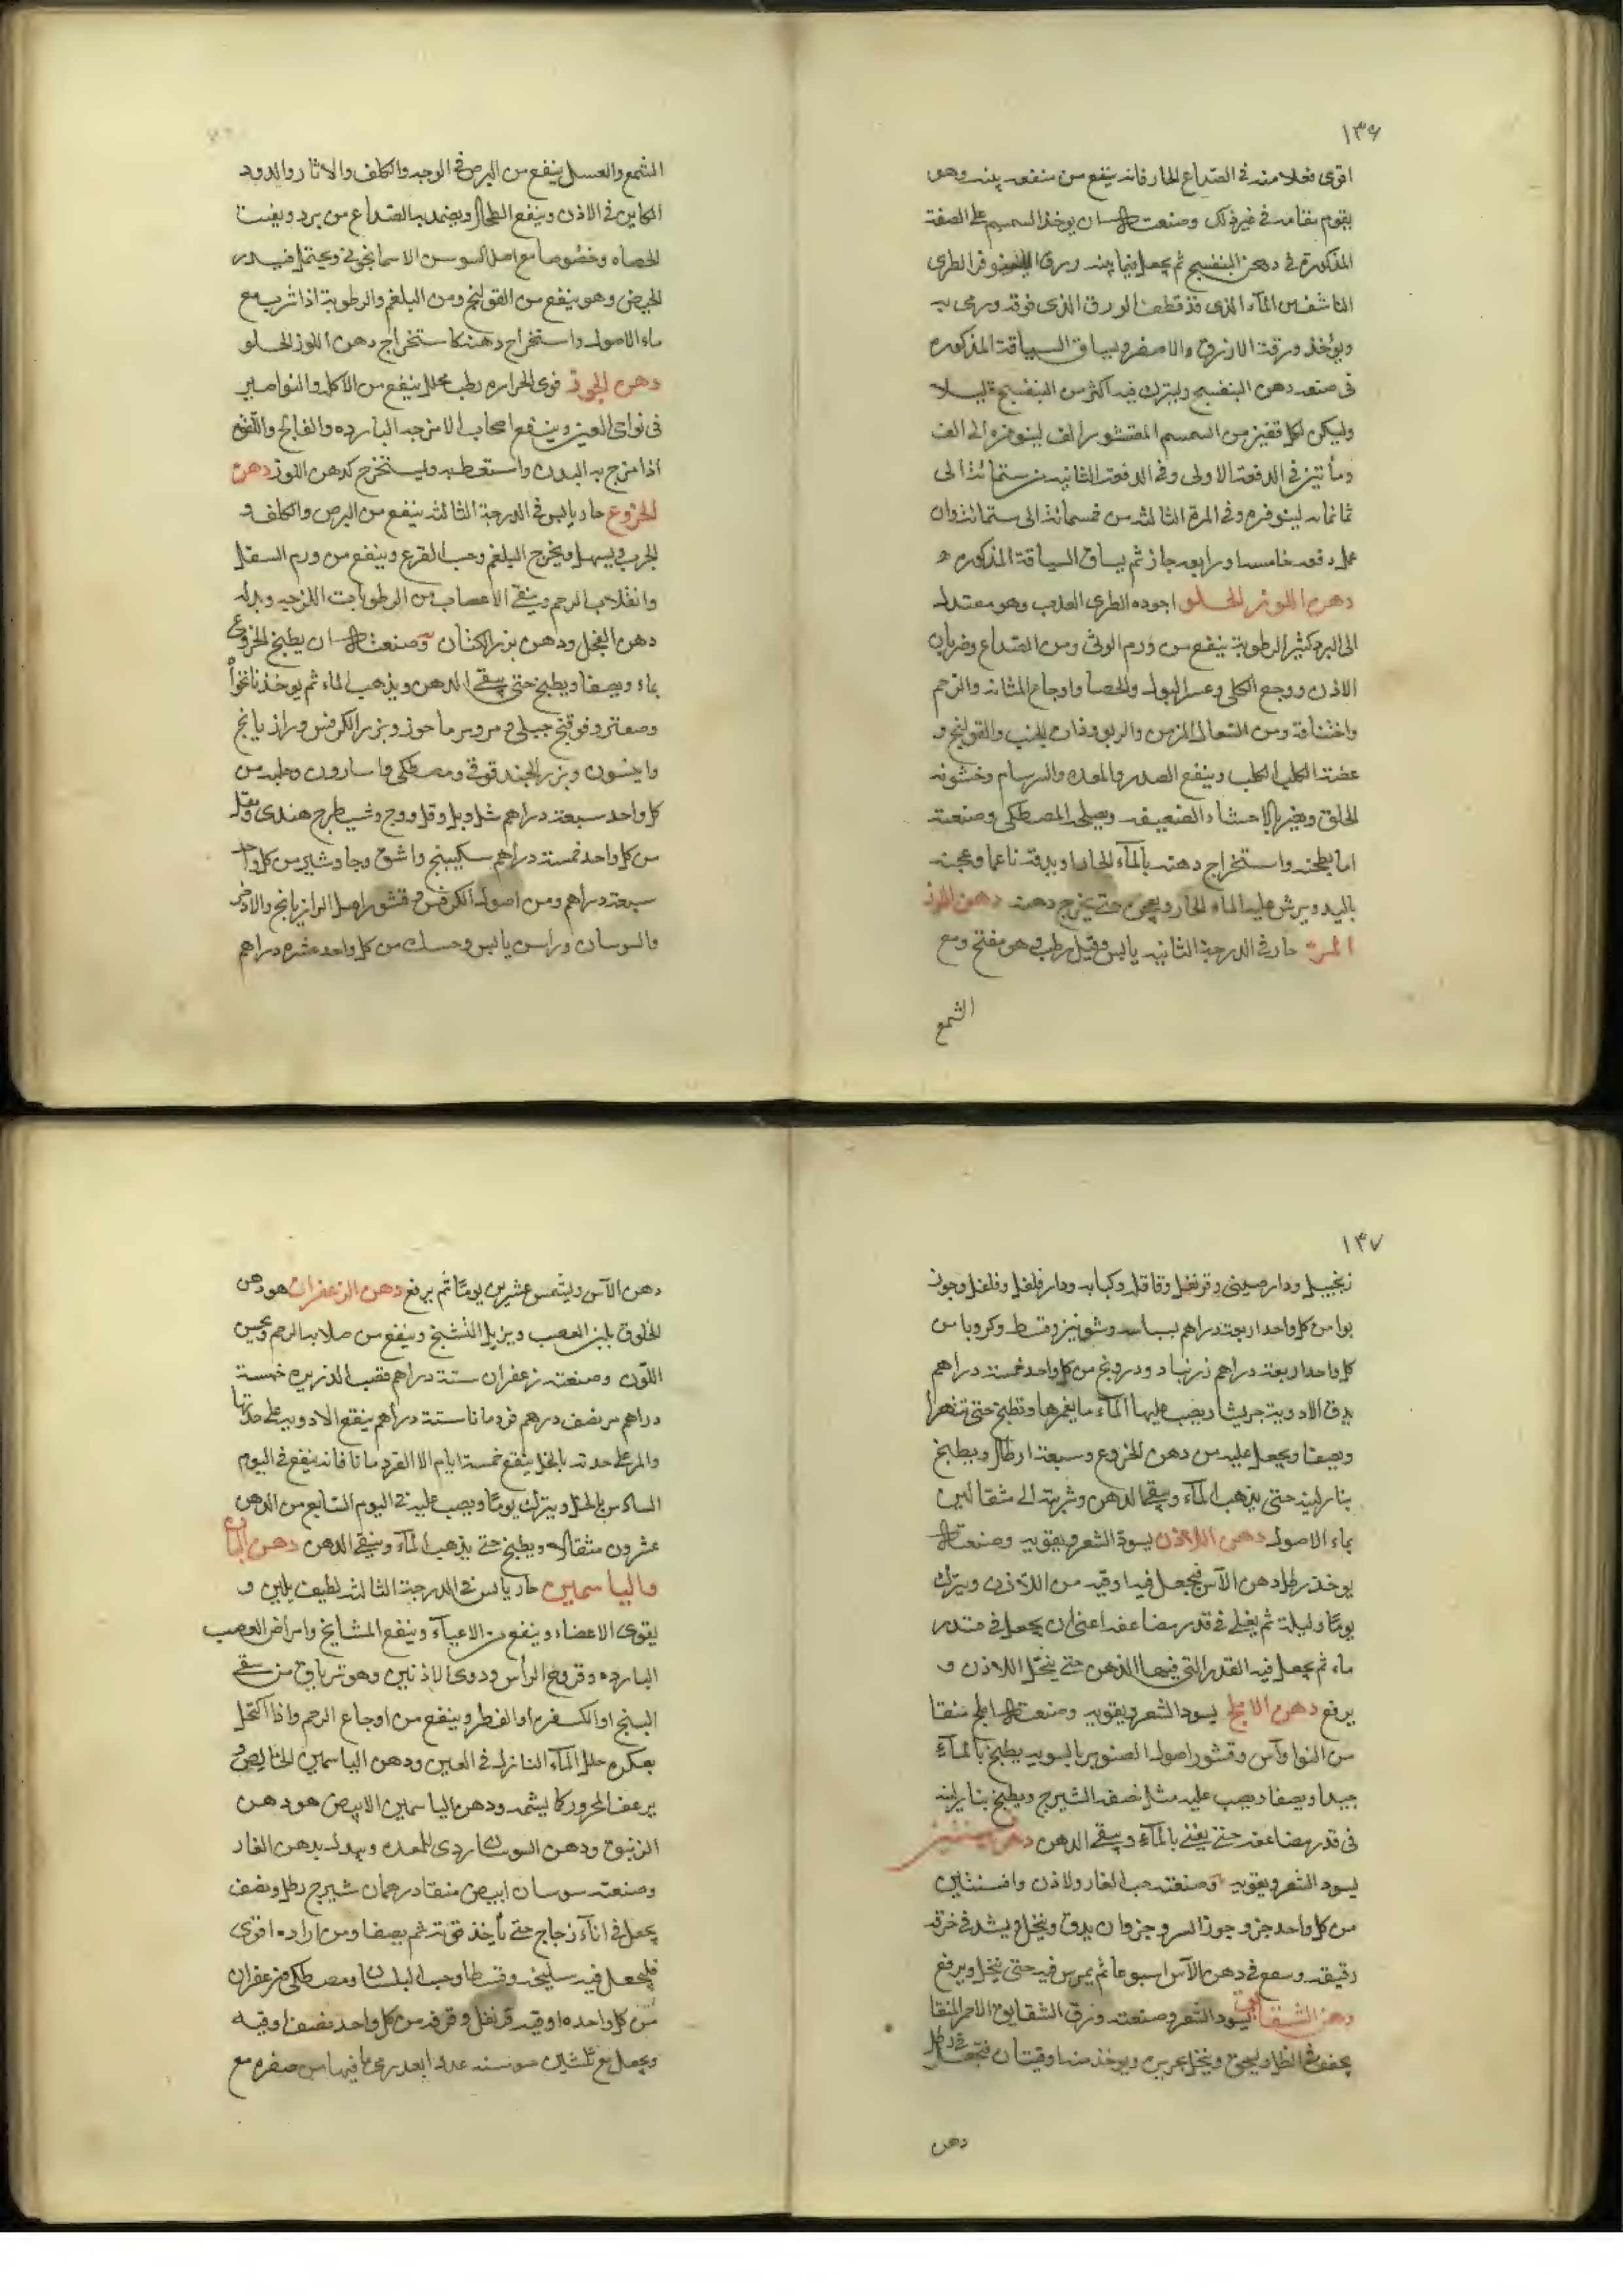 ١٣٦
اقوى فعلا منه فى الصداع الحار فانه ينفع من منفعه بينه وهو
يقوم مقامه فى غير ذلك وصنعته ان يوخذ السمسم على الصفة
المذكورة فى دهن البنفسج ثم يجعل فيما بينه ورق اللينوفر الطرى
الناشف من المآء الذى قد قطعت الورق الذى فوقه ورمى به
ويؤخذ ورقته الازرق والاصفر ويساق السياقة المذكوره
فى صنعه دهن البنفسج ويترك فيه اكثر من البنفسج قليلا
وليكن لكل قفيز من السمسم المقشور الف لينوفره الى الف
ومأتين فى الدفعة الاولى وفى الدفعة الثانيه من ستمائة الى
ثمانمائه لينوفره وفى المرة الثالثه من خمسمائة الى ستمائة وان
عمل دفعه خامسه ورابعه جاز ثم يساق السياقة المذكوره
دهن اللوز الحلو اجوده الطرى العذب وهو معتدل
الى البرد كثير الرطوبة ينفع من ورم الوثى ومن الصداع وضربان
الاذن ووجع الكلى وعسر البول والحصا واوجاع المثانه والرحم
واختناقه ومن السعال المزمن والربو وذات الجنب والقولنج و
عضة الكلب الكلب وينفع الصدر والمعده والبرسام وخشونه
الحلق ويضر بالاحشاء الضعيفه ويصلحه المصطكى وصنعته
اما بطحنه واستخراج دهنه بالمآء الحار او بدقه ناعما وعجنه
باليد ويرش عليه الماء الحار ويعجن حتى يخرج دهنه دهن اللوز
المر حار فى الدرجة الثانيه يابس وقيل رطب وهو مفتح ومع
الشمع
الشمع والعسل ينفع من البرص فى الوجه والكلف والاثار والدود
الكاين فى الاذن وينفع الطحال ويضمد به الصداع من برد ويفتت
الحصاه وخصوصا مع اصل السوسن الاسمانجونى ويحتمل فيدر
الحيض وهو ينفع من القولنج ومن البلغم والرطوبة اذا شرب مع
ماء الاصول واستخراج دهنه كاستخراج دهن اللوز الحلو
دهن الجوز قوى الحراره رطب محلل ينفع من الآكله والنواصير
فى نواحى العين وينفع اصحاب الامزجه البارده والفالج واللقوه
اذا مزج به البدن واستعط به ويستخرج كدهن اللوز دهن
الخروع حار يابس فى الدرجة الثالثه ينفع من البرص والكلف و
الجرب ويسهل ويخرج البلغم وحب القرع وينفع من ورم السفل
وانقلاب الرحم وينقى الاعصاب من الرطوبات اللزجه وبدله
دهن الفجل ودهن بزر الكتان وصنعته ان يطبخ الخروع
بماء ويصفا ويطبخ حتى يبقى الدهن ويذهب الماء ثم يوخذ نانخواه
وصعتر وفوتنج جبلى ومرو ومرماحوز وبزر الكرفس ورازيانج
وانيسون وبزر الجندقوقى ومصطكى واسارون وحلبه من
كل واحد سبعة دراهم شل وبل وفل ووج وشيطرج هندى ومقل
من كل واحد خمسة دراهم سكبينج واشق وجاوشير من كل واحد
سبعة دراهم ومن اصول الكرفس وقشور اصل الرازيانج والاذخر
والسوسان وراسن يابس وحسك من كل واحد عشره دراهم
١٣٧
زنجبيل ودارصينى وقرنفل وقاقله وكبابه ودار فلفل وفلفل وجوز
بوا من كل واحد اربعة دراهم بسباسه وشونيز وقسط وكرويا من
كل واحد اربعة دراهم زرنباد ودرونج من كل واحد خمسة دراهم
يدق الادويه جريشا ويصب عليها المآء ما يغمرها وتطبخ حتى تتهرأ
ويصفا ويجعل عليه من دهن الخروع وسبعة ارطال ويطبخ
بنار لينه حتى يذهب المآء ويبقى الدهن وشربته الى مثقالين
بماء الاصول دهن اللاذن يسود الشعر ويقويه وصنعته
يوخذ رطل دهن الآس فيجعل فيه اوقيه من اللاذن ويترك
يومًا وليلة ثم يغلى فى قدر مضاعفه اعنى ان يجعل فى قدر
ماء ثم يجعل فيه القدر التى فيها الدهن حتى ينحل اللاذن و
يرفع دهن الاملج يسود الشعر ويقويه وصنعته املج منقا
من النوا وآس وقشور اصول الصنوبر بالسويه يطبخ بالمآء
جيدا ويصفا ويصب عليه مثل نصفه الشيرج ويطبخ بنار لينه
فى قدر مضاعفه حتى يفنى بالمآء ويبقى الدهن دهن
يسود الشعر ويقويه وصنعته حب الغار ولاذن وافسنتين
من كل واحد جزو جوز السرو جزوان يدق وينخل ويشد فى خرقه
رقيقه وسع فى دهن الآس اسبوعا ثم يمرس فيه حتى ينحل ويرفع
دهن الشقايق يسود الشعر وصنعته ورق الشقايق الاحمر المنقا
يجفف فى الظل وليحق وينخل بحرير ويوخذ منه اوقيتان فتجعل فى رطل
دهن
دهن الآس ويشمس عشرين يومًا ثم يرفع دهن الزعفران هو دهن
الخلوق يلين العصب ويزيل التشنج وينفع من صلابه الرحم ويحسن
اللون وصنعته زعفران ستة دراهم قصب الذريره خمسة
دراهم مر نصف درهم قردمانا ستة دراهم ينقع الادويه على حدتها
والمر على حدته بالخل ينقع خمسة ايام الا القردمانا فانه ينقع فى اليوم
السادس بالخل ويترك يومًا ويصب عليه فى اليوم السابع من الدهن
عشرون مثقالا ويطبخ حتى يذهب المآء ويبقى الدهن دهن البان
والياسمين حار يابس فى الدرجة الثالثه لطيف يلين و
يقوى الاعضاء وينفع من الاعيآء وينفع المشايخ وامراض العصب
البارده وقروح الرأس ودوى الاذنين وهو ترياق من سقى
البنج او الكسفره او الفطر وينفع من اوجاع الرحم واذا اكتحل
بعكره حلل المآء النازل فى العين ودهن الياسمين الخالص
يرعف المحرور كما يشمه ودهن الياسمين الابيض هو دهن
الزنبق ودهن السوسان ردى للمعده وبدله دهن الغار
وصنعته سوسان ابيض منقا درهمان شيرج رطل ونصف
يجعل فى اناء زجاج حتى تأخذ قوته ثم يصفا ومن اراده اقوى
فليجعل فيه سليخه وقسطا وحب البلسان ومصطكى وزعفران
من كل واحده اوقيه قرنفل وقرفه من كل واحد نصف اوقيه
ويجعل مع ثلثين سوسنه عددا بعد رمى ما فيها من صفره مع